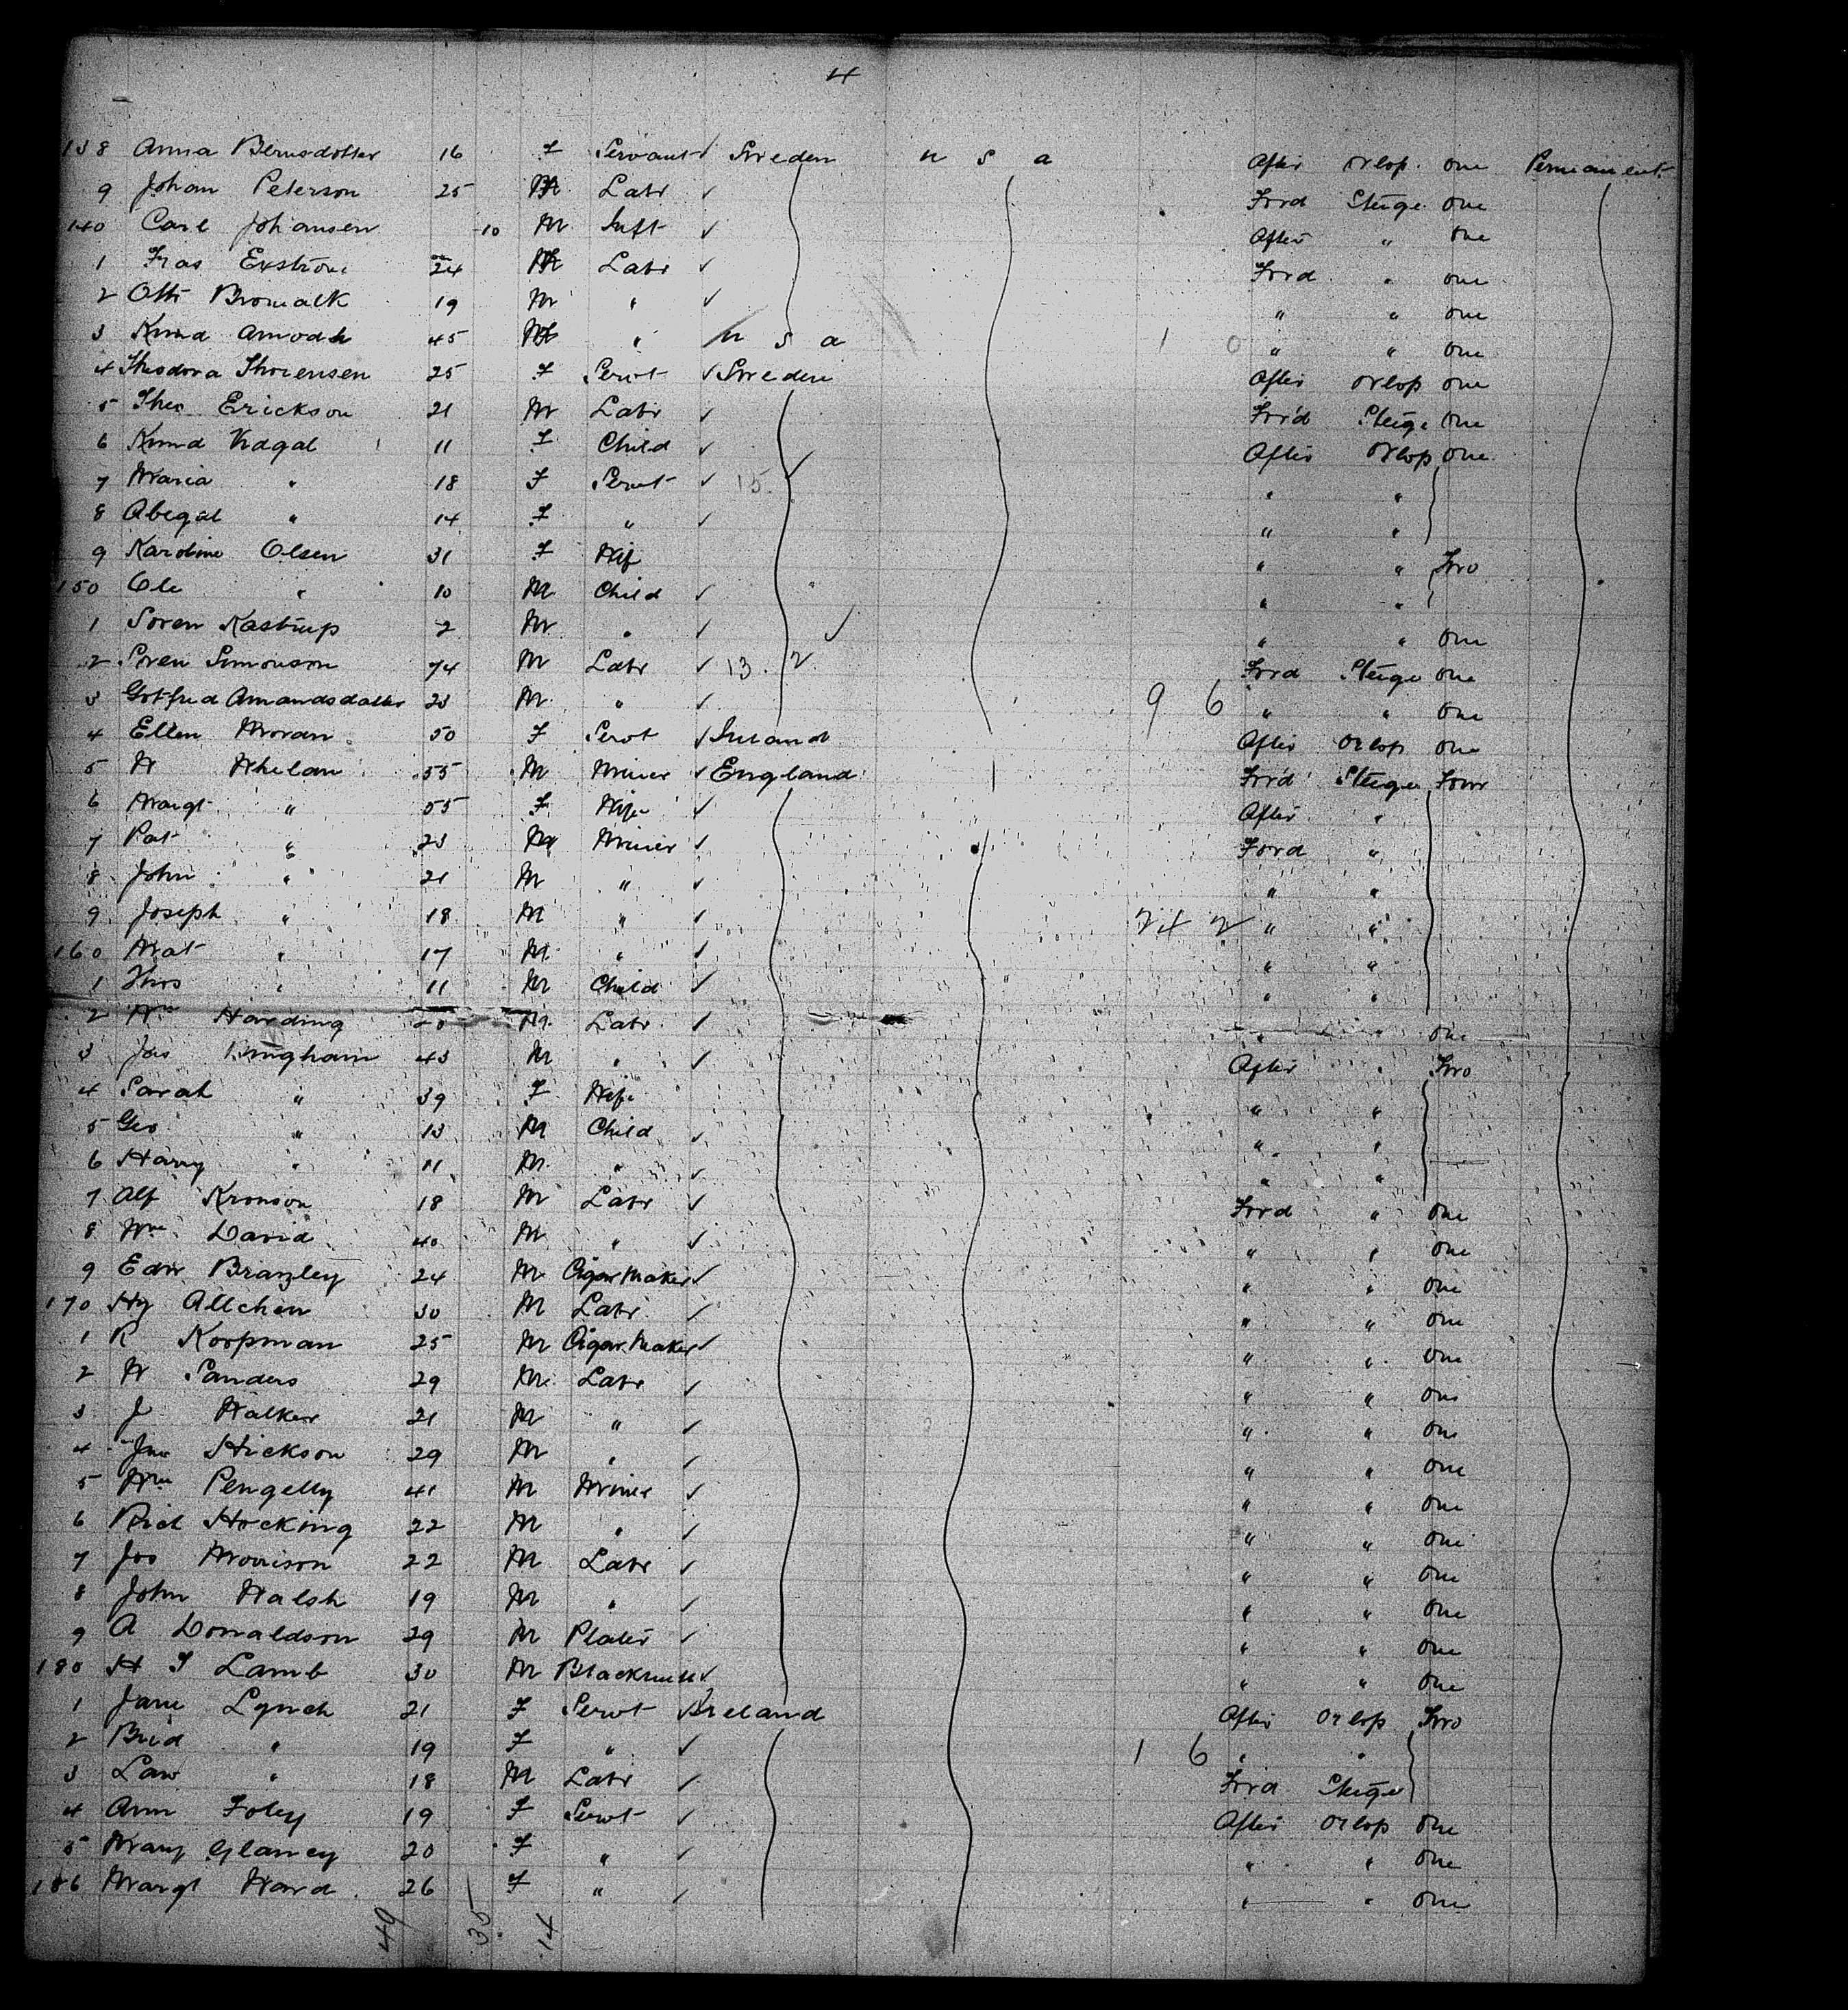 4
138 Anna Bernsdotter 16 F Servant ✓ Sweden U S A After Orlop one Permanent
9 Johan Peterson 25 M Labr ✓ Ford Steige one
140 Carl Johansen 10 M Inft ✓ After " one
1 Fras Exström 24 M Labr ✓ Ford " one
2 Otto 19 M " ✓ " " one
3 Knud 45 M " U S A 1 0 " " one
4 Theodora Thorensen 25 F Servt ✓ Sweden After Orlop one
5 Theo Erickson 21 M Labr ✓ For'd Steige one
6 Knud Kragal 11 F Child ✓ After Orlop one
7 Maria " 18 F Servt ✓ 15 ✓ " "
8 Abegal " 14 F " ✓ " "
9 Karoline Olsen 31 F Wife " " Two
150 Ole " 10 M Child ✓ " "
1 Soren Kastrup 2 M " ✓ ✓ " " one
2 Soren Simonson 74 M Labr ✓ 13 . 2 Ford Steige one
3 Gotfred Amandsdatter 23 M " ✓ 9 6 " " one
4 Ellen Moran 50 F Servt ✓ Ireland After Orlop one
5 W Whelan 55 M Miner ✓ England For'd Steige Four
6 Margt " 55 F Wife ✓ After "
7 Pat " 23 M Miner ✓ Ford "
8 John " 21 M " ✓ " "
9 Joseph " 18 M " ✓ 24 2 " "
160 Mat " 17 M " ✓ " "
1 Thos " 11 M Child ✓ " "
2 Wm Harding M Labr ✓ " " one
3 Jas Bingham 43 M " ✓ After " Two
4 Sarah " 39 F Wife " "
5 Geo " 13 M Child ✓ " "
6 Harry " 11 M " ✓ " "
7 Alf Kronson 18 M Labr ✓ Ford " one
8 Wm David 40 M " ✓ " " one
9 Edw Branzley 24 M Cigar Maker ✓ " " one
170 Hy Allchen 30 M Labr ✓ " " one
1 R Koopman 25 M Cigar Maker ✓ " " one
2 W Sanders 29 M Labr ✓ " " one
3 J Walker 21 M " ✓ " " one
4 Jno Hickson 29 M " ✓ " " one
5 Wm Pengelly 41 M Miner ✓ " " one
6 Rich Hocking 22 M " ✓ " " one
7 Jos Morrison 22 M Labr ✓ " " one
8 John Walsh 19 M " ✓ " " one
9 A Donaldson 29 M Plater ✓ " " one
180 H J Lamb 30 M Blacksmith ✓ " " one
1 Jane Lynch 21 F Servt ✓ Ireland After Orlop Two
2 Brid " 19 F " ✓ 1 6 " "
3 Law " 18 M Labr ✓ Ford Steige
4 Ann Foley 19 F Servt ✓ After Orlop one
5 Mary Glancy 20 F " ✓ " " one
186 Margt Ward 26 F " ✓ " " one
49 35 14